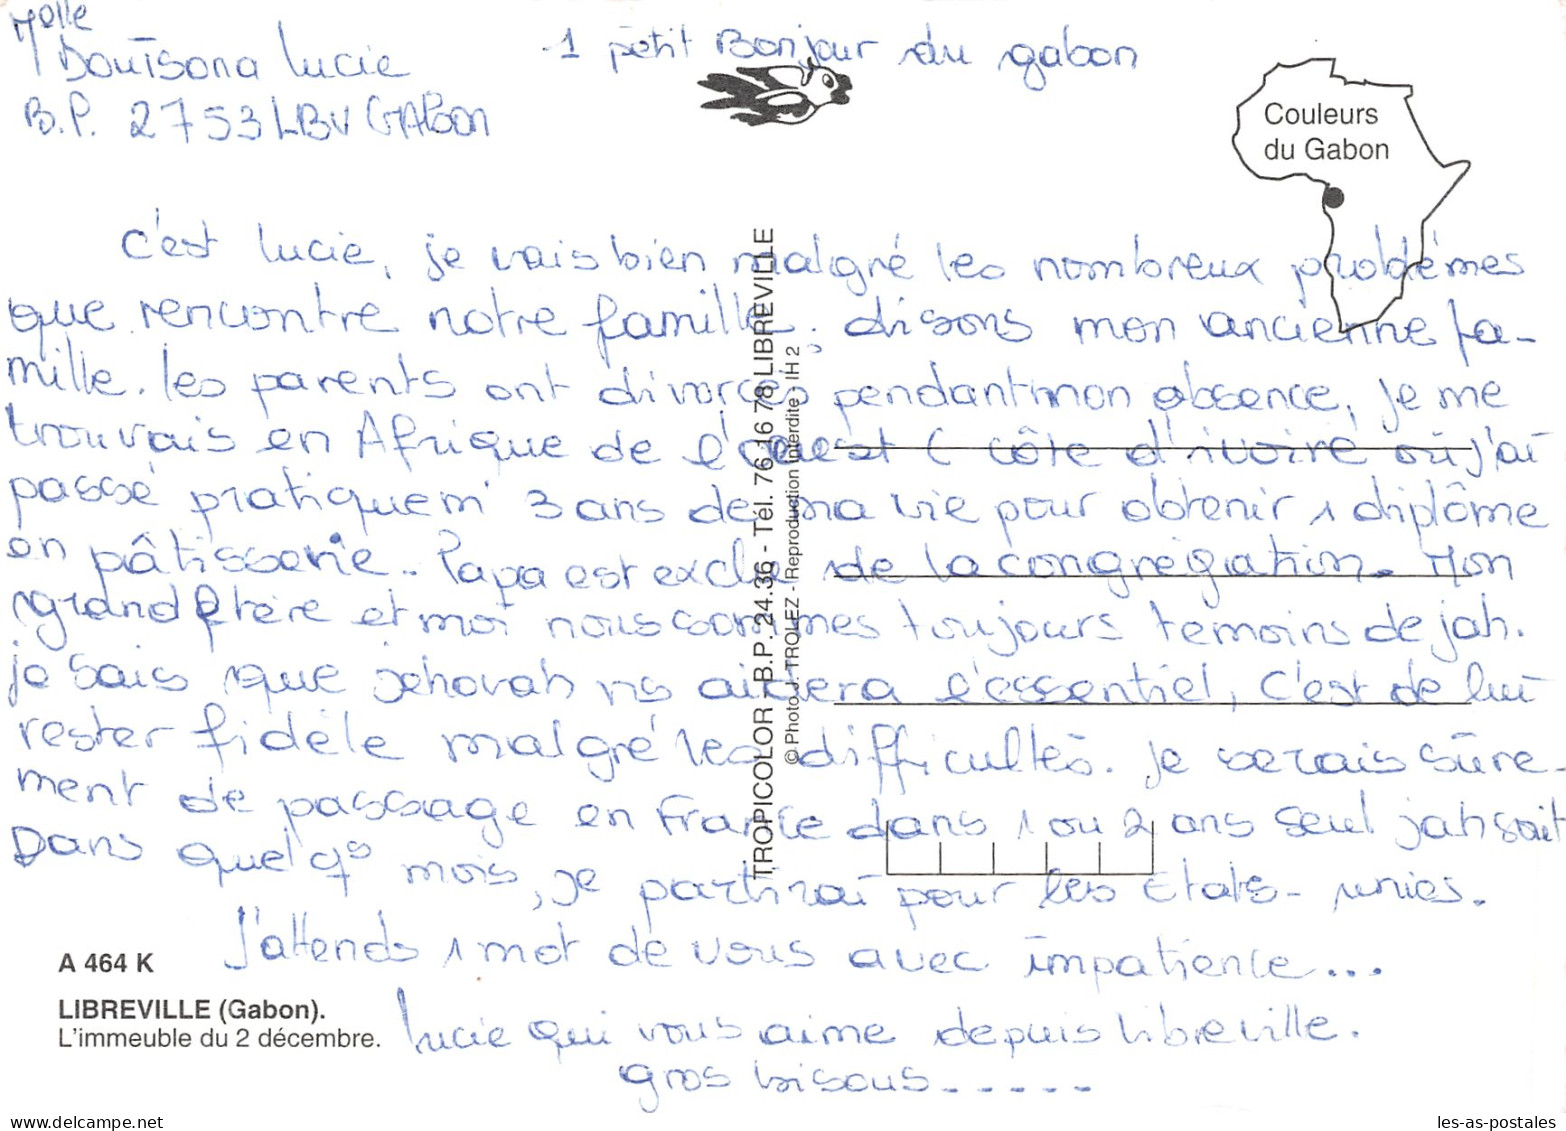 Mlle
Douïsona Lucie
B.P. 2753 LBV GABon
1 petit Bonjour du gabon
Couleurs
du Gabon
c'est Lucie, je vais bien malgré les nombreux problèmes
que rencontre notre famille; disons mon ancienne fa-
mille. les parents ont divorcés pendant mon absence, je me
trouvais en Afrique de l'ouest ( côte d'ivoire où j'ai
passé pratiquem' 3 ans de ma vie pour obtenir 1 diplôme
en pâtisserie.. Papa est exclu de la congrégation. Mon
grand frère et moi nous sommes toujours temoins de jah.
je sais que jéhovah ns aidera l'essentiel, c'est de lui
rester fidèle malgré les difficultés. je serais sûre-
ment de passage en France dans 1 ou 2 ans seul jah sait
Dans quelqs mois, je partirai pour les Etats-unies.
J'attends 1 mot de vous avec impatience...
Lucie qui vous aime depuis libreville.
gros bisous-----
TROPICOLOR - B.P. 24.36 - Tél. 76 16 78 LIBREVILLE
© Photo J. TROLEZ - Reproduction interdite - IH 2
A 464 K
LIBREVILLE (Gabon).
L'immeuble du 2 décembre.
les-as-postales